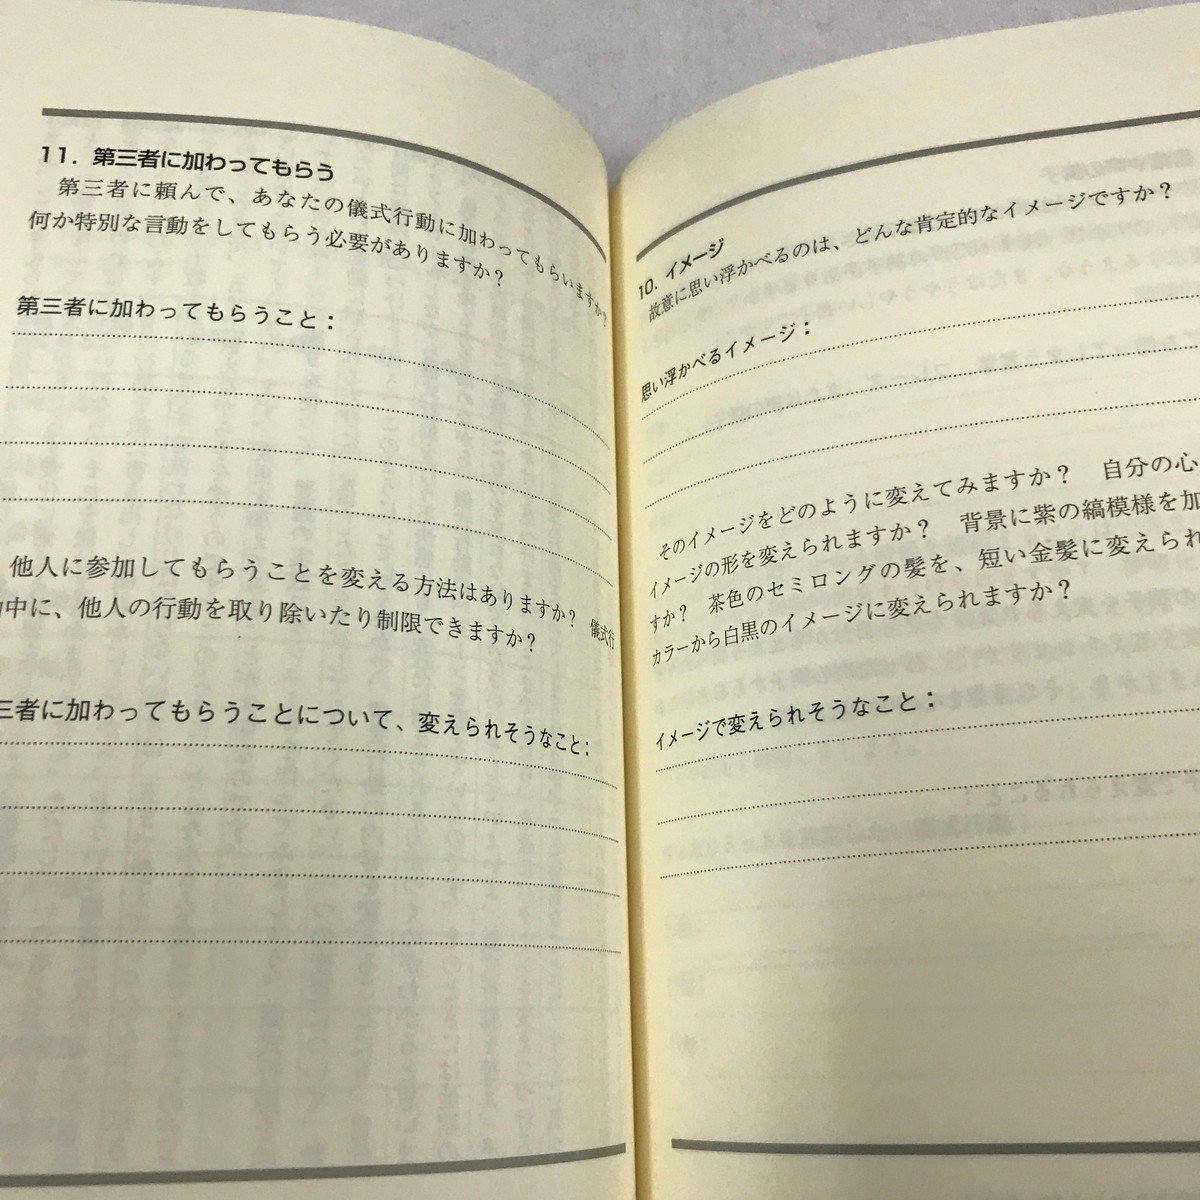 10. イメージ
故意に思い浮かべるのは、どんな肯定的なイメージですか？
思い浮かべるイメージ：
そのイメージをどのように変えてみますか？　自分の心
イメージの形を変えられますか？　背景に紫の縞模様を加
すか？　茶色のセミロングの髪を、短い金髪に変えられ
カラーから白黒のイメージに変えられますか？
イメージで変えられそうなこと：
11. 第三者に加わってもらう
第三者に頼んで、あなたの儀式行動に加わってもらいますか？
何か特別な言動をしてもらう必要がありますか？
第三者に加わってもらうこと：
他人に参加してもらうことを変える方法はありますか？　儀式行
中に、他人の行動を取り除いたり制限できますか？
三者に加わってもらうことについて、変えられそうなこと：